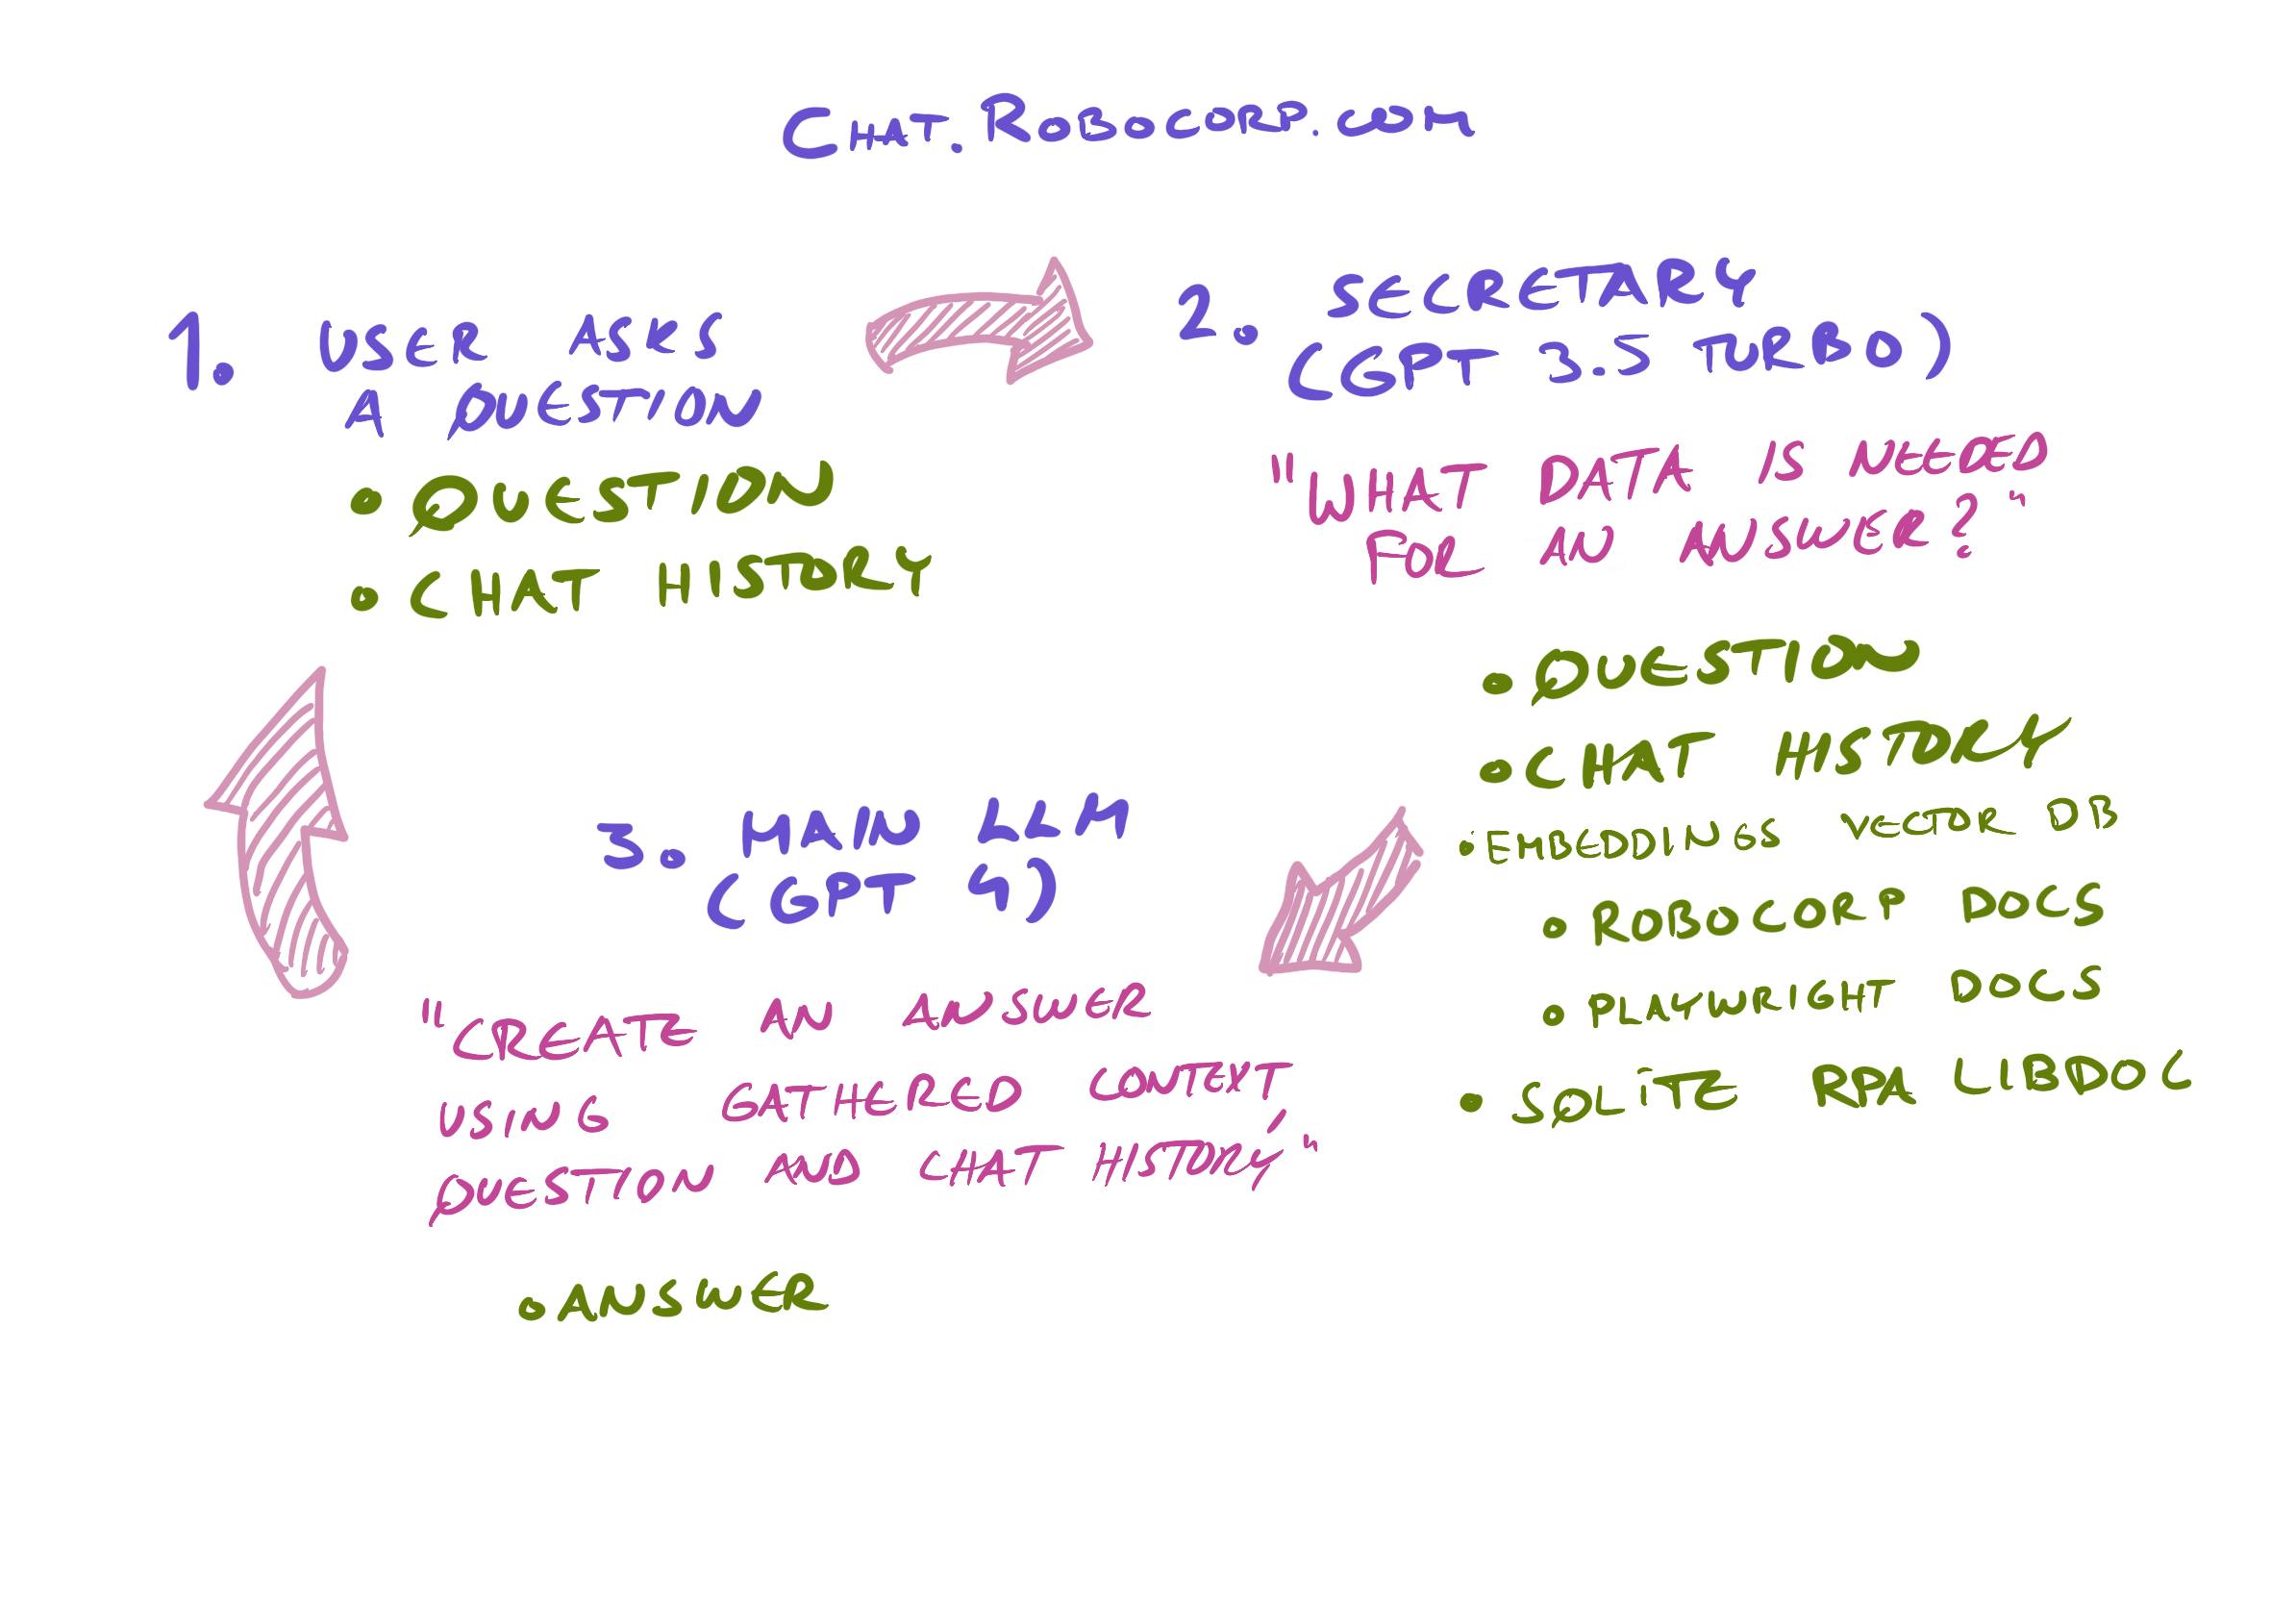 CHAT.ROBOCORP.COM
1. USER ASKS
A QUESTION
• QUESTION
• CHAT HISTORY
2. SECRETARY
(GPT 3.5 TURBO)
"WHAT DATA IS NEEDED
FOR AN ANSWER?"
• QUESTION
• CHAT HISTORY
• EMBEDDINGS VECTOR DB
• ROBOCORP DOCS
• PLAYWRIGHT DOCS
• SQLITE RPA LIBDOC
3. MAIN LLM
(GPT 4)
"CREATE AN ANSWER
USING GATHERED CONTEXT,
QUESTION AND CHAT HISTORY"
• ANSWER